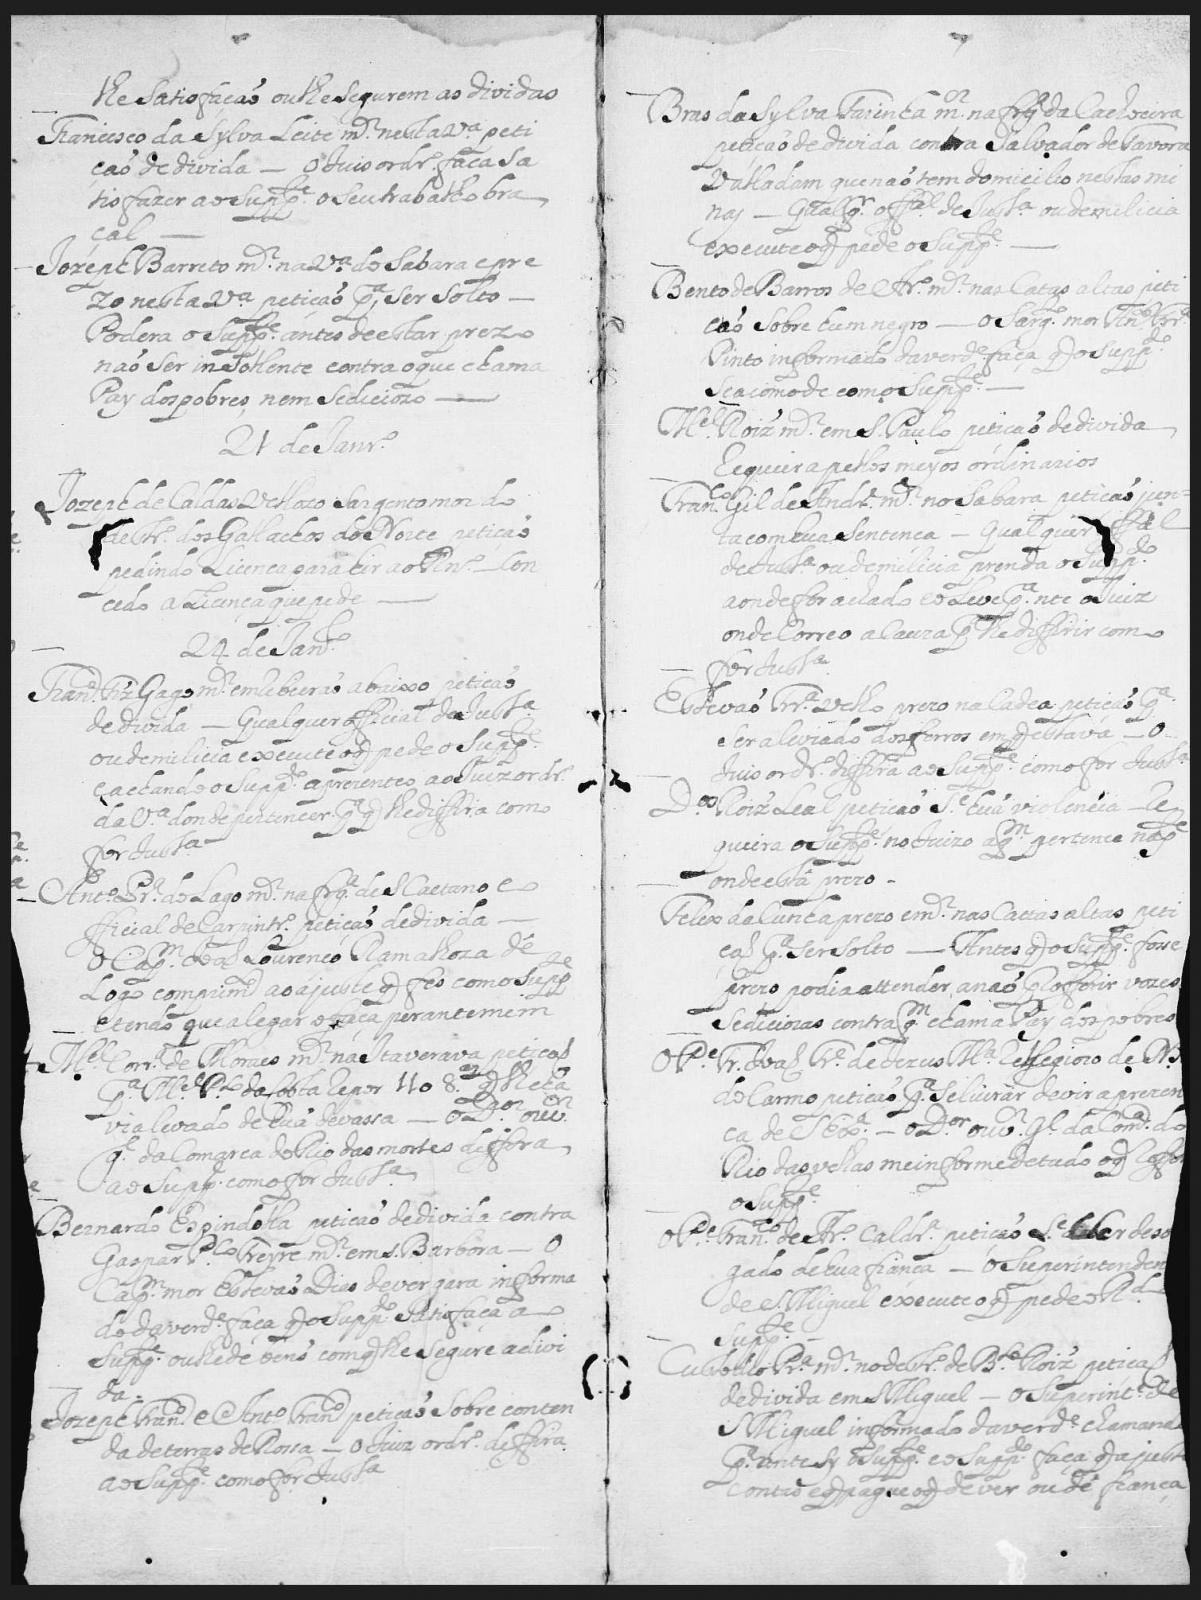 lhe satisfação ou lhe segurem as dividas
Francisco da Sylva Leite mor. nesta Va. peti
ção de divida — O Juis ordro. faça sa
tisfazer ao Suppe. o seu trabalho bra
çal —
Jozeph Barreto mor. na Va. do Sabara e pre
zo nesta Va. petição pa. ser solto —
Podera o Suppe. antes de estar prezo
não ser insolente contra o que chama
Pay dos pobres, nem sediciozo —
21 de Janro.
Jozeph de Caldas Velloso Sargento mor do
destro. dos Gallachos do Norte petição
pedindo Licença para hir ao Rno. — Con
cedo a Licença que pede —
24 de Janro.
Franco. Frz Gago mor. em Ribeirão abaixo petição
de divida — Qualquer official de Justa.
ou de milicia execute o q pede o Suppe.
e achando o Suppdo. aprezente ao Juiz ordro.
da Va. donde pertencer pa. q lhe diffira como
for Justa.
Anto. Pra. do Lago mor. na frga. de S Caetano e
official de Carpintro. petição de divida —
O Capm. Lourenço Ramalhoza dê
Logo comprimto ao ajuste q fes como Suppe
e tendo que alegar o faça perante mim
Mel. Corra. de Moraes mor. na Itaverava petição
pa. Mel. da Costa repor 110 8as q lhe ha
via levado de hua devassa — o Dor. ouvor.
gl. da Comarca do Rio das mortes diffira
ao Suppe. como for Justa
Bernardo Espindolla petição de divida contra
Gaspar Freyre mor. em S. Barbora — O
Capm. mor Estevão Dias de vergara informa
do da verde. faça q o Suppdo satisfaça ao
Suppe. ou lhe dê bens com q lhe segure a divi
da.
Jozeph Franco. e Anto. Franco petição sobre conten
da de terras de Rossa — o Juiz ordro. diffira
ao Suppe. como for Justa
Bras da Sylva Farinha mor. na frga da Cachoeira
petição de divida contra Salvador de Tavora
Valladam que não tem domicilio nestas mi
nas — Qualqr. offal. de Justa. ou de milicia
execute o q pede o Suppe. —
Bento de Barros de Aro. mor. nas Catas altas peti
ção sobre hum negro — o Sargto. mor
Pinto informado da verde. faça q o Suppdo.
se acomode com o Suppe. —
Mel. Roiz mor. em S. Paulo petição de divida
Requeira pellos meyos ordinarios
Franco. Gil de Andre. mor. no Sabara petição jun=
ta com hua sentença — Qualquer offal
de Justa ou de milicia prenda o Suppdo.
aonde for achado e o Leve pa. nte o Juiz
onde Correo a Cauza pa. lhe diffirir como
for Justa.
Estevão Fra. Velho prezo na Cadea petição pa.
ser aleviado dos ferros em q estava — O
Juis ordro. diffira ao Suppe. como for Justa
Dos. Roiz Leal petição Se. hua violencia — Re
queira o Suppe. no Juizo a qm. pertence na pe
onde está prezo —
Felix da Cunha prezo e mor. nas Cattas altas peti
ção pa. ser solto — Antes q o Suppe. fosse
prezo podia attender, a não proferir vozes
sediciozas contra qm. chama Pay dos pobres
O Pe. Fr. de Jezus Ma. Religiozo de N. S.
do Carmo petição pa. se livrar de vir a prezen
ça de S Exa. — o Dor ouvor. gl. da Coma. do
Rio das velhas me informe de tudo o q
o Suppe.
O Pe. Franco. de Aro. Caldra. petição Se. haver deso
gado de hua fiança — O Superintenden
de S. Miguel execute o q pede o Rdo
Suppe. —
Custodio Pra. mor. no destro. de Bre. Roiz petição
de divida em S Miguel — o Superinte. de
S Miguel informado da verde. chamando
pa. ante sy o Suppe. e o Suppdo. faça q ajuste
contas e q pague o q dever ou dê fiança